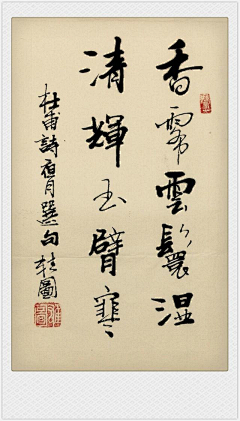 香霧雲鬟湿
清輝玉臂寒
杜甫詩月選句